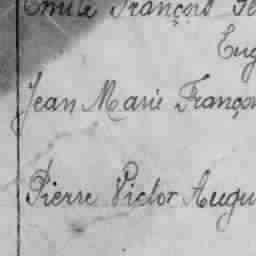 Emile François
Eug
Jean Marie Françoi
Pierre Victor Augu